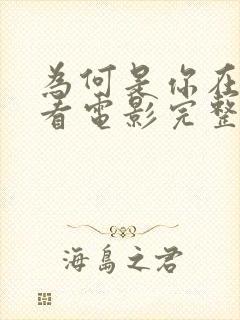 為何是你在
看電影完整
海島之君